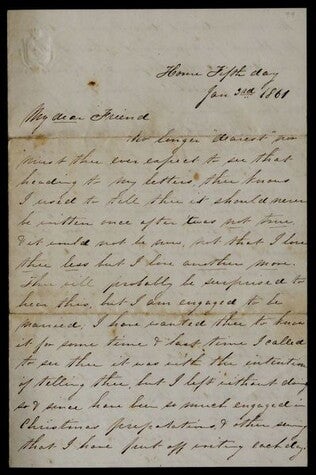 Home Fifth day
Jan 3rd 1861
My dear Friend
No longer "dearest" nor
must thee ever expect to see that
heading to my letters, thee knows
I used to tell thee it should never
be written once after twas not true,
& it could not be now, not that I love
thee less but I love another more.
Thee will probably be surprised to
hear this, but I am engaged to be
married, I have wanted thee to know
it for some time & last time I called
to see thee it was with the intention
of telling thee, but I left without doing
so & since have been so much engaged in
Christmas preparations & other sewing
that I have put off writing each day.